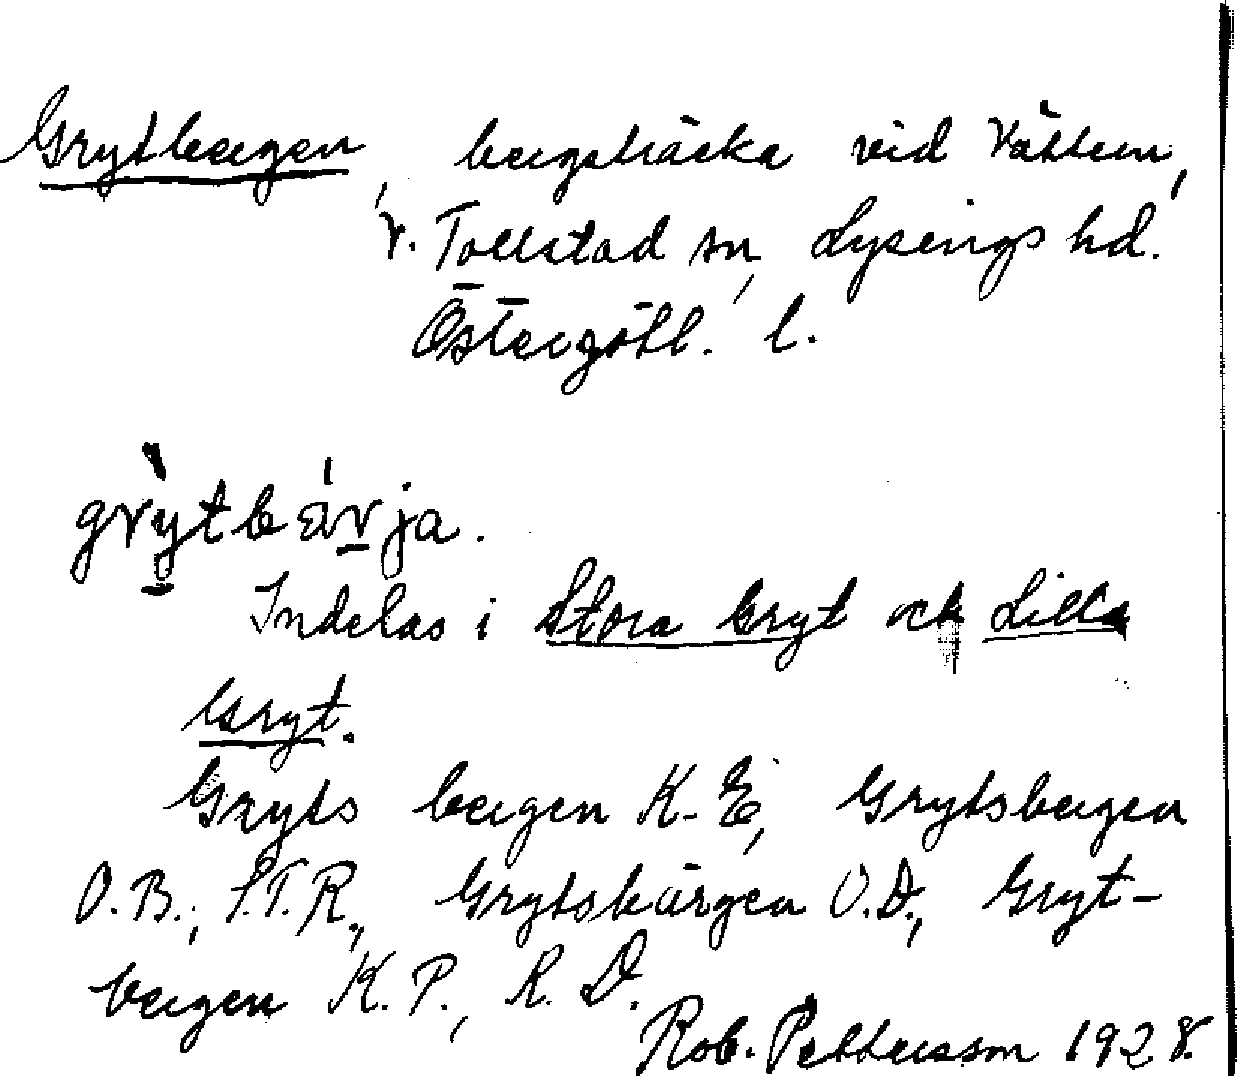 Grytbergen, bergsträcka vid Vättern,
V. Tollstad sn, Lysings hd.
Östergötl. l.
grỳtbä́rja.
Indelas i Stora Gryt och Lilla
Gryt.
Gryts bergen K.E., Grytsbergen
O.B., S.T.R., Grytsbärgen O.D., Gryt-
bergen K.P., R.D.
Rob. Pettersson 1928.